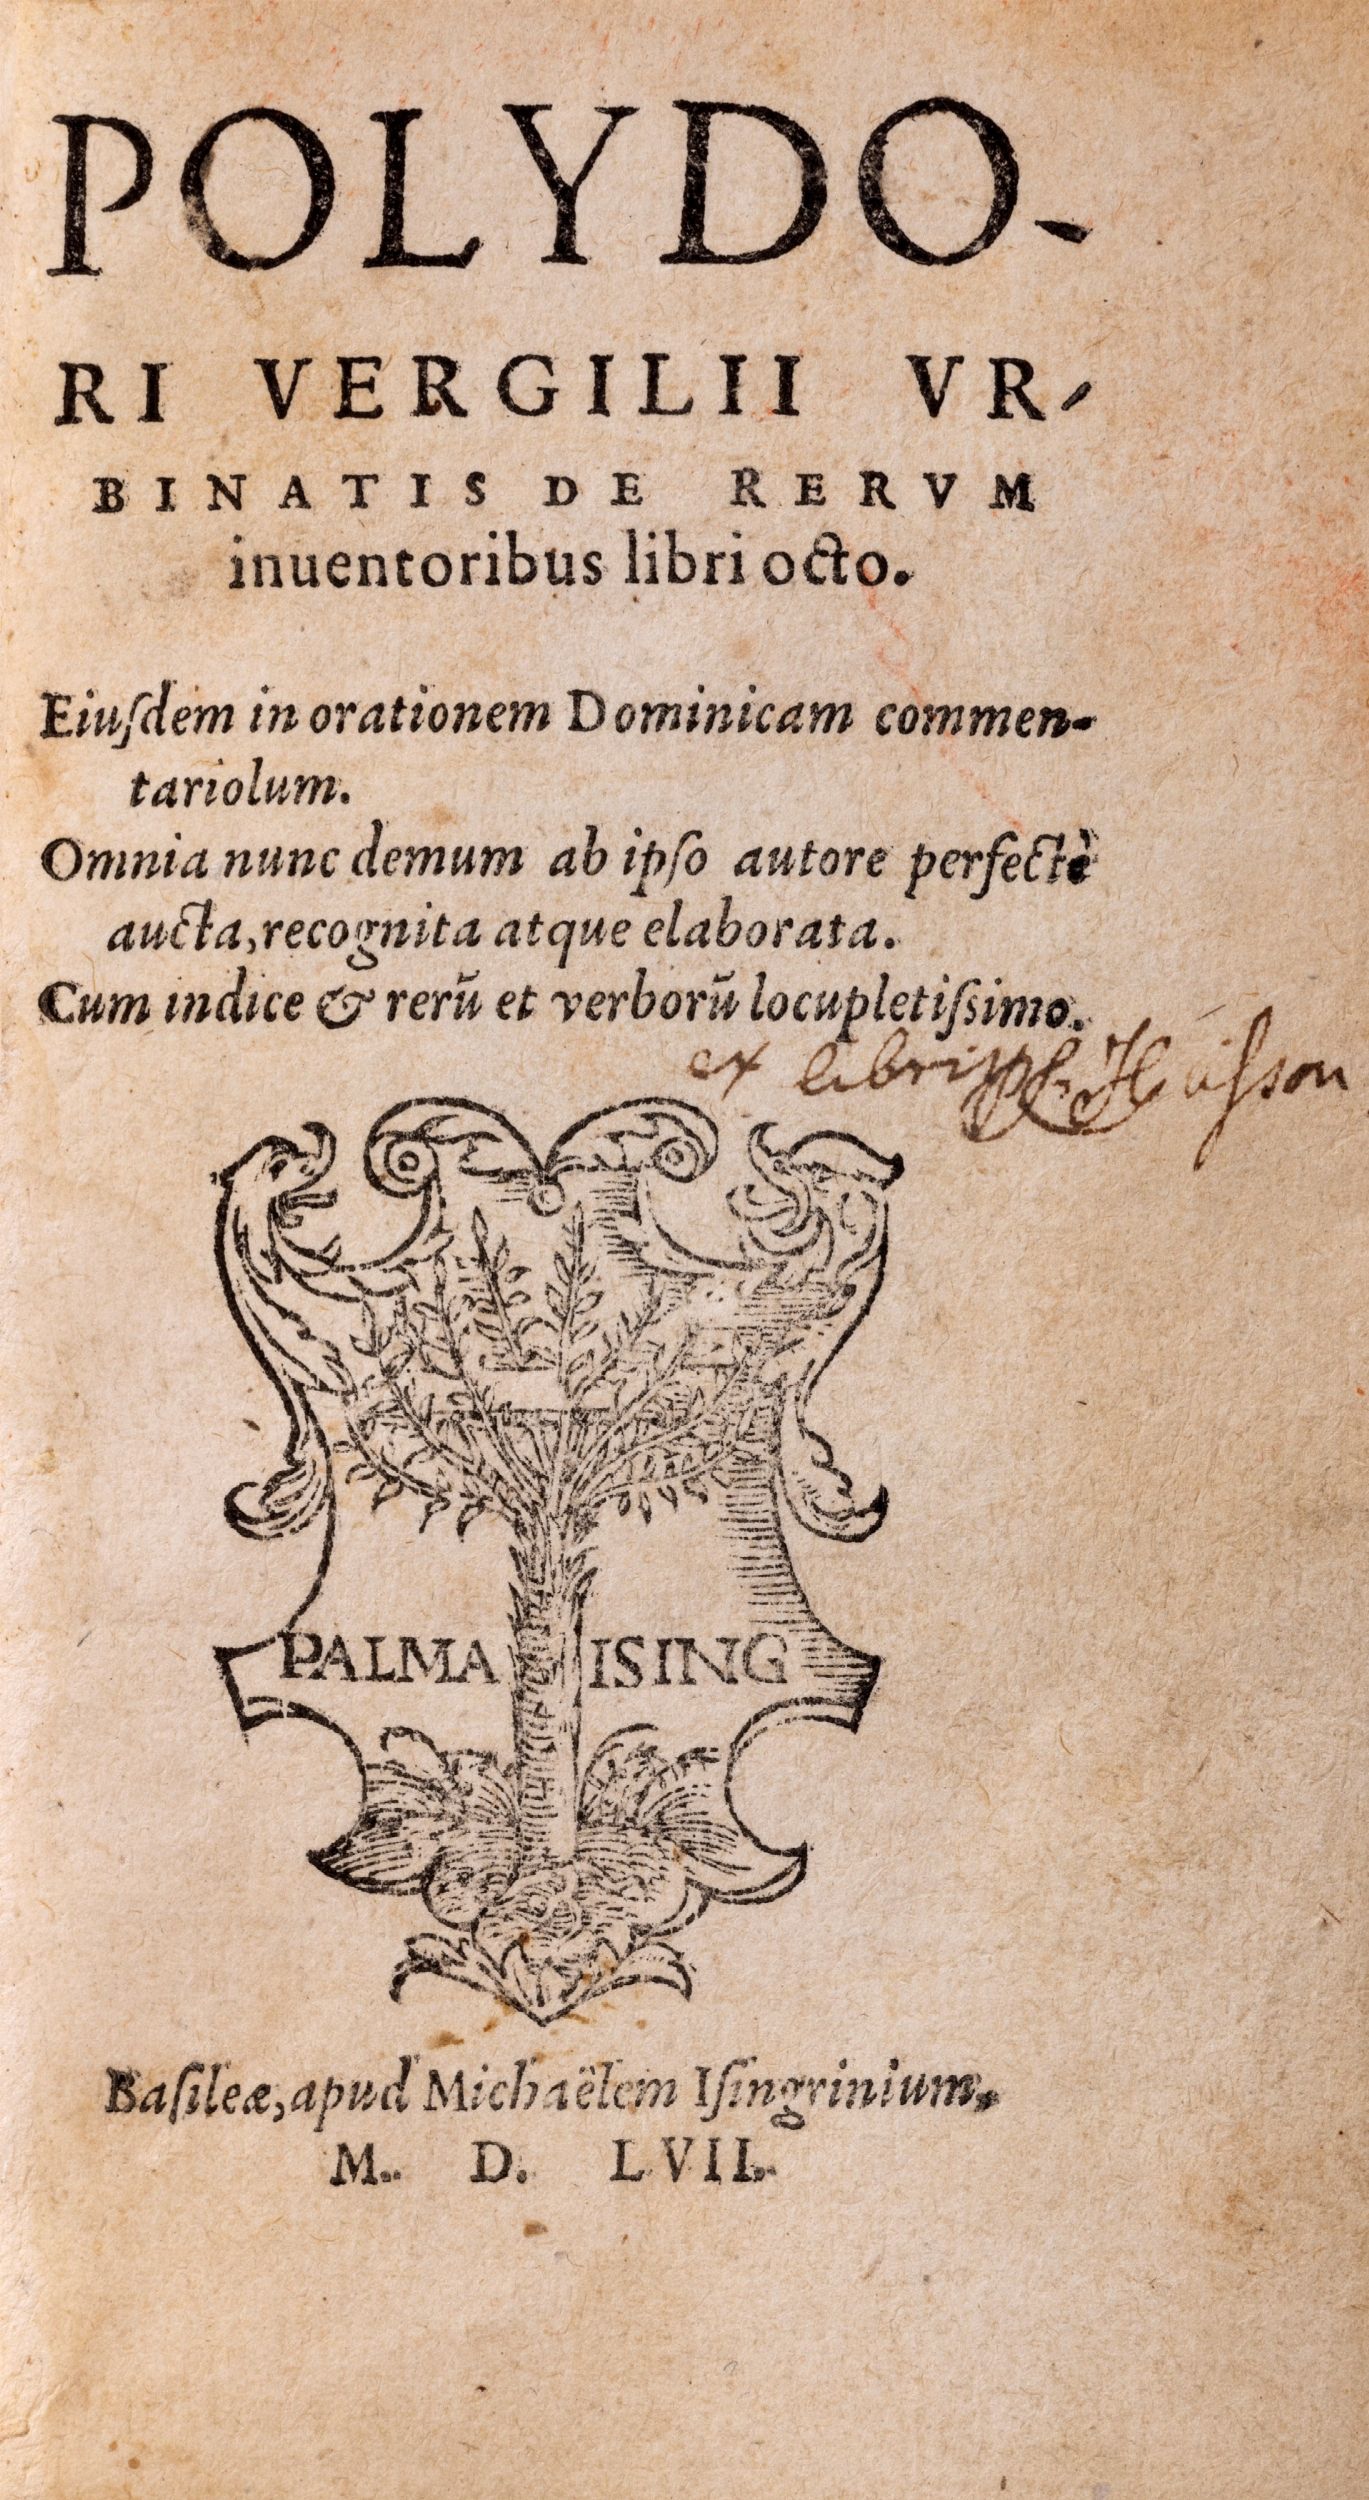 POLYDO-
RI VERGILII VR-
BINATIS DE RERVM
inuentoribus libri octo.
Eiuſdem in orationem Dominicam commen-
tariolum.
Omnia nunc demum ab ipſo autore perfectè
aucta, recognita atque elaborata.
Cum indice & rerū et verborū locupletiſsimo.
ex libris
PALMA ISING
Baſileæ, apud Michaëlem Iſingrinium.
M. D. LVII.